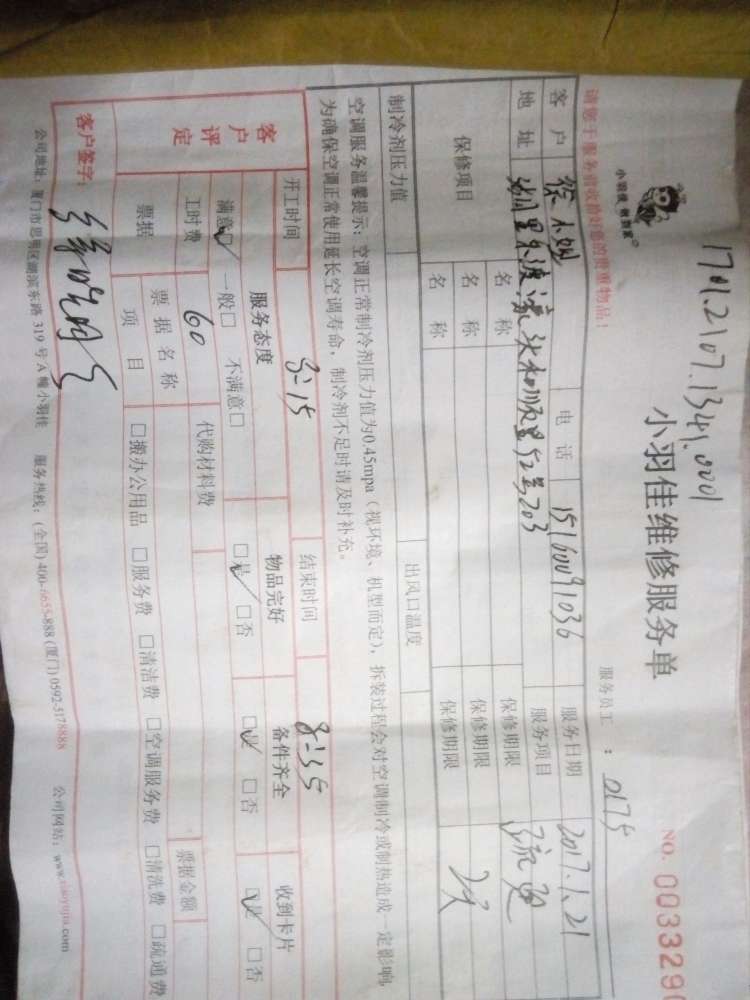 1701.2107.1341.0001
小羽佳 做到家
小羽佳维修服务单
NO. 0033290
请您于服务前收拾好您的贵重物品！
服务员工：0175
客户 电话 15160091036 服务日期 2017.1.21
地址 52号203 服务项目 疏通
保修项目 名称 保修期限
名称 保修期限
名称 保修期限
制冷剂压力值 出风口温度
空调服务温馨提示：空调正常制冷剂压力值为0.45mpa（视环境、机型而定），拆装过程会对空调制冷或制热造成一定影响，
为确保空调正常使用延长空调寿命，制冷剂不足时请及时补充。
开工时间 3:15 结束时间 8:35
客户评定 服务态度 物品完好 备件齐全 收到卡片
满意☑ 一般□ 不满意□ ☑是 □否 ☑是 □否 ☑是 □否
工时费 60 代购材料费
票据 票据名称 票据金额
项目 □搬办公用品 □服务费 □清洁费 □空调服务费 □清洗费 □疏通费
客户签字：
公司地址：厦门市思明区湖滨东路319号A幢小羽佳 服务热线：(全国) 400-6655-888 (厦门) 0592-5178888 公司网站：www.xiaoyujia.com